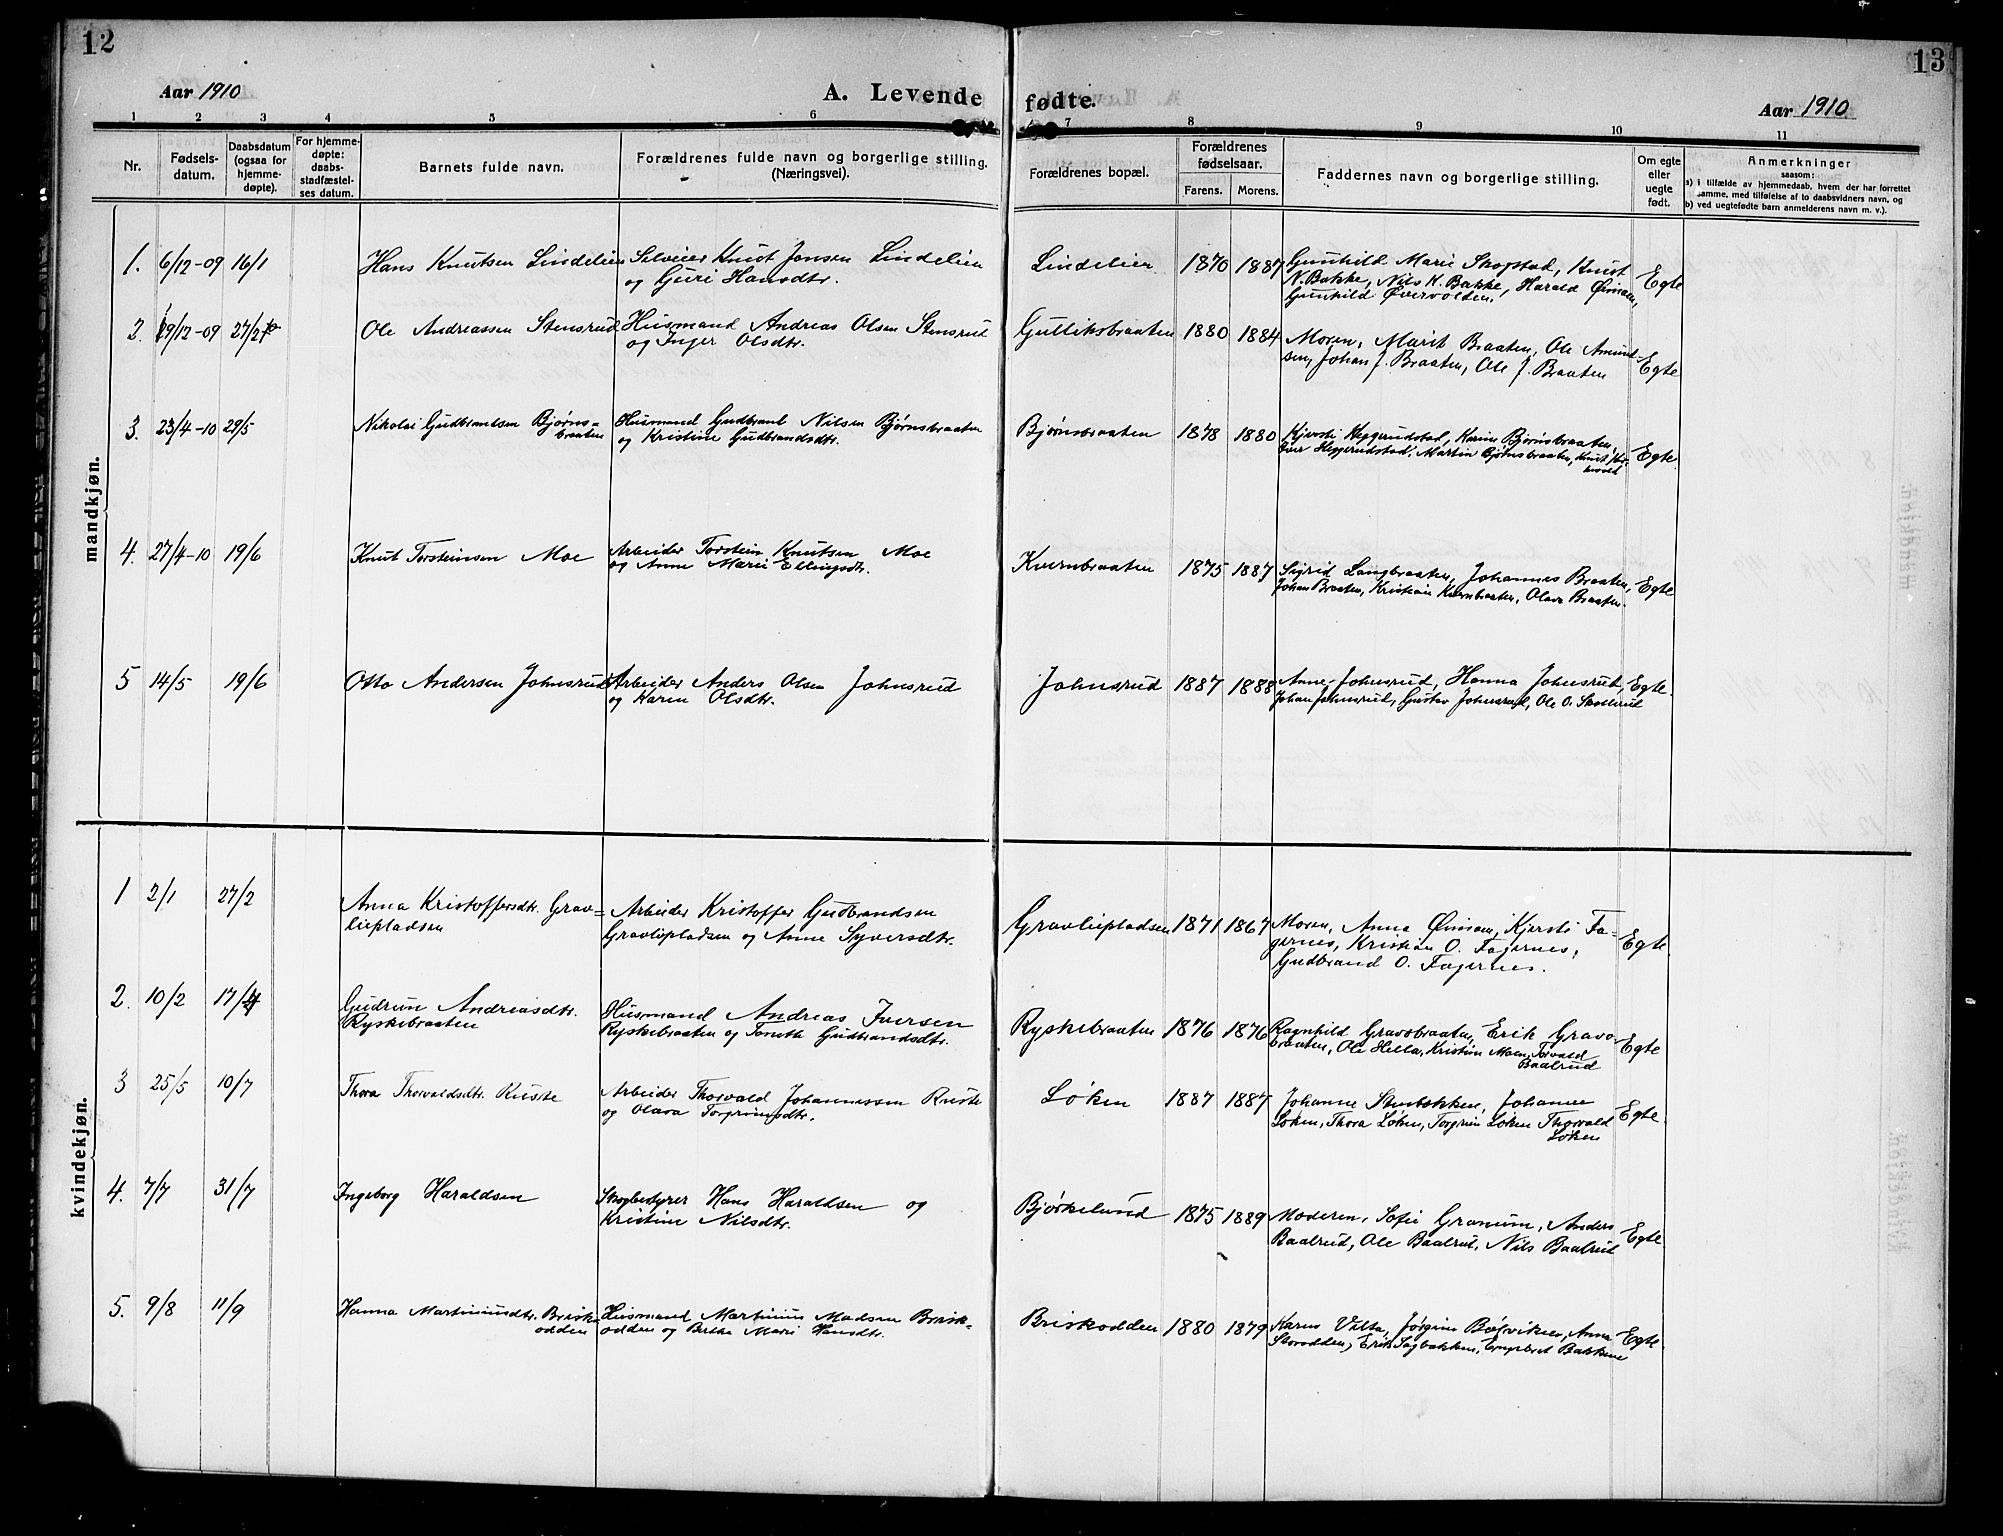 12
13
Aar 1910
A. Levende fødte.
Aar 1910
1 2 3 4 5 6 7 8 9 10 11
Nr.
Fødsels-
datum.
Daabsdatum
(ogsaa for
hjemme-
døpte).
For hjemme-
døpte:
daabs-
stadfæstel-
ses datum.
Barnets fulde navn.
Forældrenes fulde navn og borgerlige stilling.
(Næringsvei).
Forældrenes bopæl.
Forældrenes
fødselsaar.
Farens. Morens.
Faddernes navn og borgerlige stilling.
Om egte
eller
uegte
født.
Anmerkninger
saasom:
a) i tilfælde av hjemmedaab, hvem der har forrettet
samme, med tilføielse af to daabsvidners navn, og
b) ved uegtefødte barn anmelderens navn m. v.).
mandkjøn.
1. 6/12-09 16/1
Hans Knutsen Lindelien
Selveier Knut Jonsen Lindelien
og Guri Hansdtr.
Lindelien 1870 1887
Gunhild Marie Skogstad, Knut
N. Bakke, Nils K. Bakke, Harald Øimoen,
Gunhild Øvervolden.
Egte
2. 29/12-09 27/2
Ole Andreassen Stensrud
Husmand Andreas Olsen Stensrud
og Inger Olsdtr.
Gulliksbraaten 1880 1884
Moren, Marit Braaten, Ole Amund-
sen, Johan J. Braaten, Ole J. Braaten
Egte
3. 23/4-10 29/5
Nikolai Gudbrandsen Bjørns-
braaten
Husmand Gudbrand Nilsen Bjørnsbraaten
og Kristine Gudbrandsdtr.
Bjørnsbraaten 1878 1880
Kjersti Heggerudstad, Karine Bjørnsbraaten,
Iver Heggerudstad, Martin Bjørnsbraaten, Knut
Egte.
4. 27/4-10 19/6
Knut Torsteinsen Moe
Arbeider Torstein Knutsen Moe
og Anne Marie Ellingsdtr.
Kvernbraaten 1875 1887
Sigrid Langbraaten, Johannes Braaten,
Johan Braaten, Kristian Kvernbraaten, Olava Braaten.
Egte
5 14/5 19/6
Otto Andersen Johnsrud
Arbeider Anders Olsen Johnsrud
og Karen Olsdtr.
Johnsrud 1887 1888
Anne Johnsrud, Hanna Johnsrud,
Johan Johnsrud, Gustav Johnsrud, Ole O. Skollerud
Egte.
kvindekjøn.
1 2/1 27/2
Anna Kristoffersdtr. Grav-
liepladsen
Arbeider Kristoffer Gudbrandsen
Gravliepladsen og Anne Syversdtr.
Gravliepladsen 1871 1867
Moren, Anna Øimoen, Kjersti Fa-
gernes, Kristian O. Fagernes,
Gudbrand O. Fagernes.
Egte
2. 10/2 17/4
Gudrun Andreasdtr.
Ryskebraaten
Husmand Andreas Iversen
Ryskebraaten og Tonette Gudbrandsdtr.
Ryskebraaten 1876 1876
Ragnhild Gravobraaten, Erik Gravo-
braaten, Ole Hella, Kristine Moen, Torvald
Baalrud
Egte
3 25/5 10/7
Thora Thorvaldsdtr. Ruste
Arbeider Thorvald Johannessen Ruste
og Olava Torgrimsdtr.
Løken 1887 1887
Johanne Stenbakken, Johanne
Løken, Thora Løken, Torgrim Løken Thorvald
Løken
Egte.
4. 7/7 31/7
Ingeborg Haraldsen
Skogbestyrer Hans Haraldsen og
Kristine Nilsdtr.
Bjørkelund 1875 1889
Moderen, Sofie Granum, Anders
Baalrud, Ole Baalrud, Nils Baalrud
Egte.
5. 9/8 11/9
Hanna Martiniusdtr. Brisk-
odden
Husmand Martinius Madsen Brisk-
odden og Berthe Marie Hansdtr.
Briskodden 1880 1879
Karen Velta, Jørgine Bølviken, Anna
Storodden, Erik Sagbakken, Engebret Bakkene
Egte.